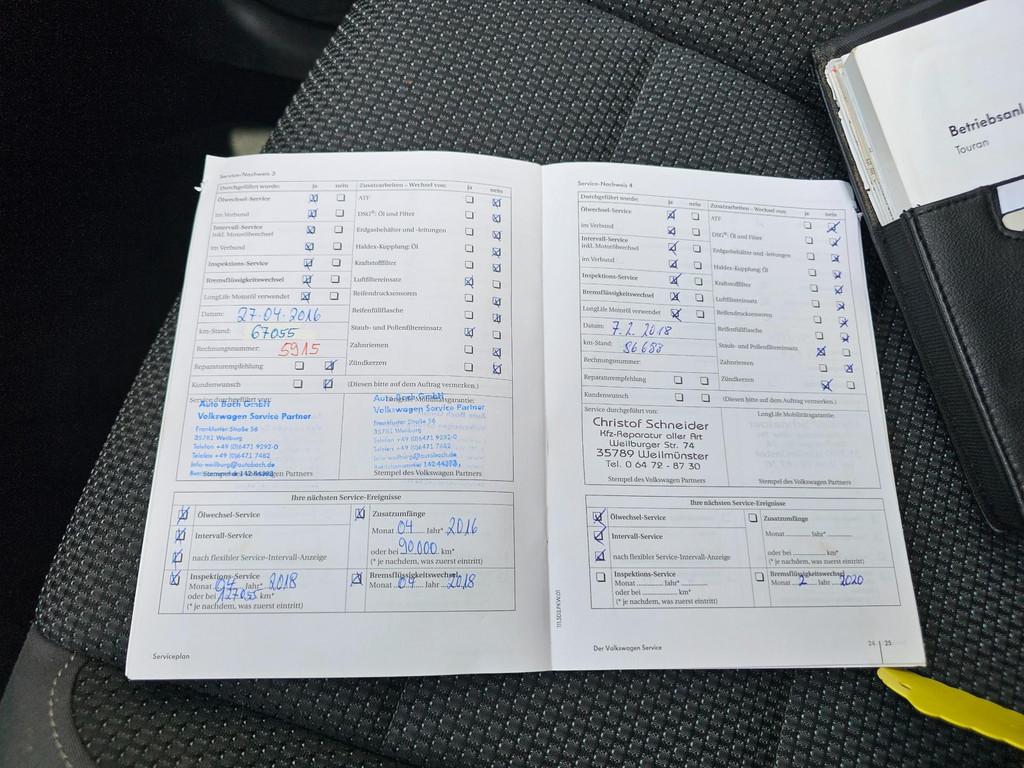 Service-Nachweis 3
Durchgeführt wurde: ja nein
Ölwechsel-Service
im Verbund
Intervall-Service
inkl. Motorölwechsel
im Verbund
Inspektions-Service
Bremsflüssigkeitswechsel
LongLife Motoröl verwendet
Datum: 27.04.2016
km-Stand: 67055
Rechnungsnummer: 5915
Reparaturempfehlung
Kundenwunsch
Zusatzarbeiten – Wechsel von: ja nein
ATF
DSG®: Öl und Filter
Erdgasbehälter und -leitungen
Haldex-Kupplung: Öl
Kraftstofffilter
Luftfiltereinsatz
Reifendrucksensoren
Reifenfüllflasche
Staub- und Pollenfiltereinsatz
Zahnriemen
Zündkerzen
(Diesen bitte auf dem Auftrag vermerken.)
Service durchgeführt von:
Auto Bach GmbH
Volkswagen Service Partner
Frankfurter Straße 56
35781 Weilburg
Telefon +49 (0)6471 9292-0
Telefax +49 (0)6471 7462
info-weilburg@autobach.de
LongLife Mobilitätsgarantie:
Auto Bach GmbH
Volkswagen Service Partner
Frankfurter Straße 56
35781 Weilburg
Telefon +49 (0)6471 9292-0
Telefax +49 (0)6471 7462
info-weilburg@autobach.de
Stempel des Volkswagen Partners
Ihre nächsten Service-Ereignisse
Ölwechsel-Service
Intervall-Service
nach flexibler Service-Intervall-Anzeige
Inspektions-Service
Monat 04 Jahr* 2018
oder bei 127055 km*
(* je nachdem, was zuerst eintritt)
Zusatzumfänge
Monat 04 Jahr* 2016
oder bei 90.000 km*
(* je nachdem, was zuerst eintritt)
Bremsflüssigkeitswechsel
Monat 04 Jahr 2018
Serviceplan
Service-Nachweis 4
Durchgeführt wurde: ja nein
Ölwechsel-Service
im Verbund
Intervall-Service
inkl. Motorölwechsel
im Verbund
Inspektions-Service
Bremsflüssigkeitswechsel
LongLife Motoröl verwendet
Datum: 7.2.2018
km-Stand: 86683
Rechnungsnummer:
Reparaturempfehlung
Kundenwunsch
Zusatzarbeiten – Wechsel von: ja nein
ATF
DSG®: Öl und Filter
Erdgasbehälter und -leitungen
Haldex-Kupplung: Öl
Kraftstofffilter
Luftfiltereinsatz
Reifendrucksensoren
Reifenfüllflasche
Staub- und Pollenfiltereinsatz
Zahnriemen
Zündkerzen
(Diesen bitte auf dem Auftrag vermerken.)
Service durchgeführt von:
Christof Schneider
Kfz-Reparatur aller Art
Weilburger Str. 74
35789 Weilmünster
Tel. 0 64 72 - 87 30
Stempel des Volkswagen Partners
LongLife Mobilitätsgarantie:
Stempel des Volkswagen Partners
Ihre nächsten Service-Ereignisse
Ölwechsel-Service
Intervall-Service
nach flexibler Service-Intervall-Anzeige
Inspektions-Service
Monat Jahr*
oder bei km*
(* je nachdem, was zuerst eintritt)
Zusatzumfänge
Monat Jahr*
oder bei km*
(* je nachdem, was zuerst eintritt)
Bremsflüssigkeitswechsel
Monat 2 Jahr 2020
Der Volkswagen Service
24 | 25
Betriebsanl
Touran